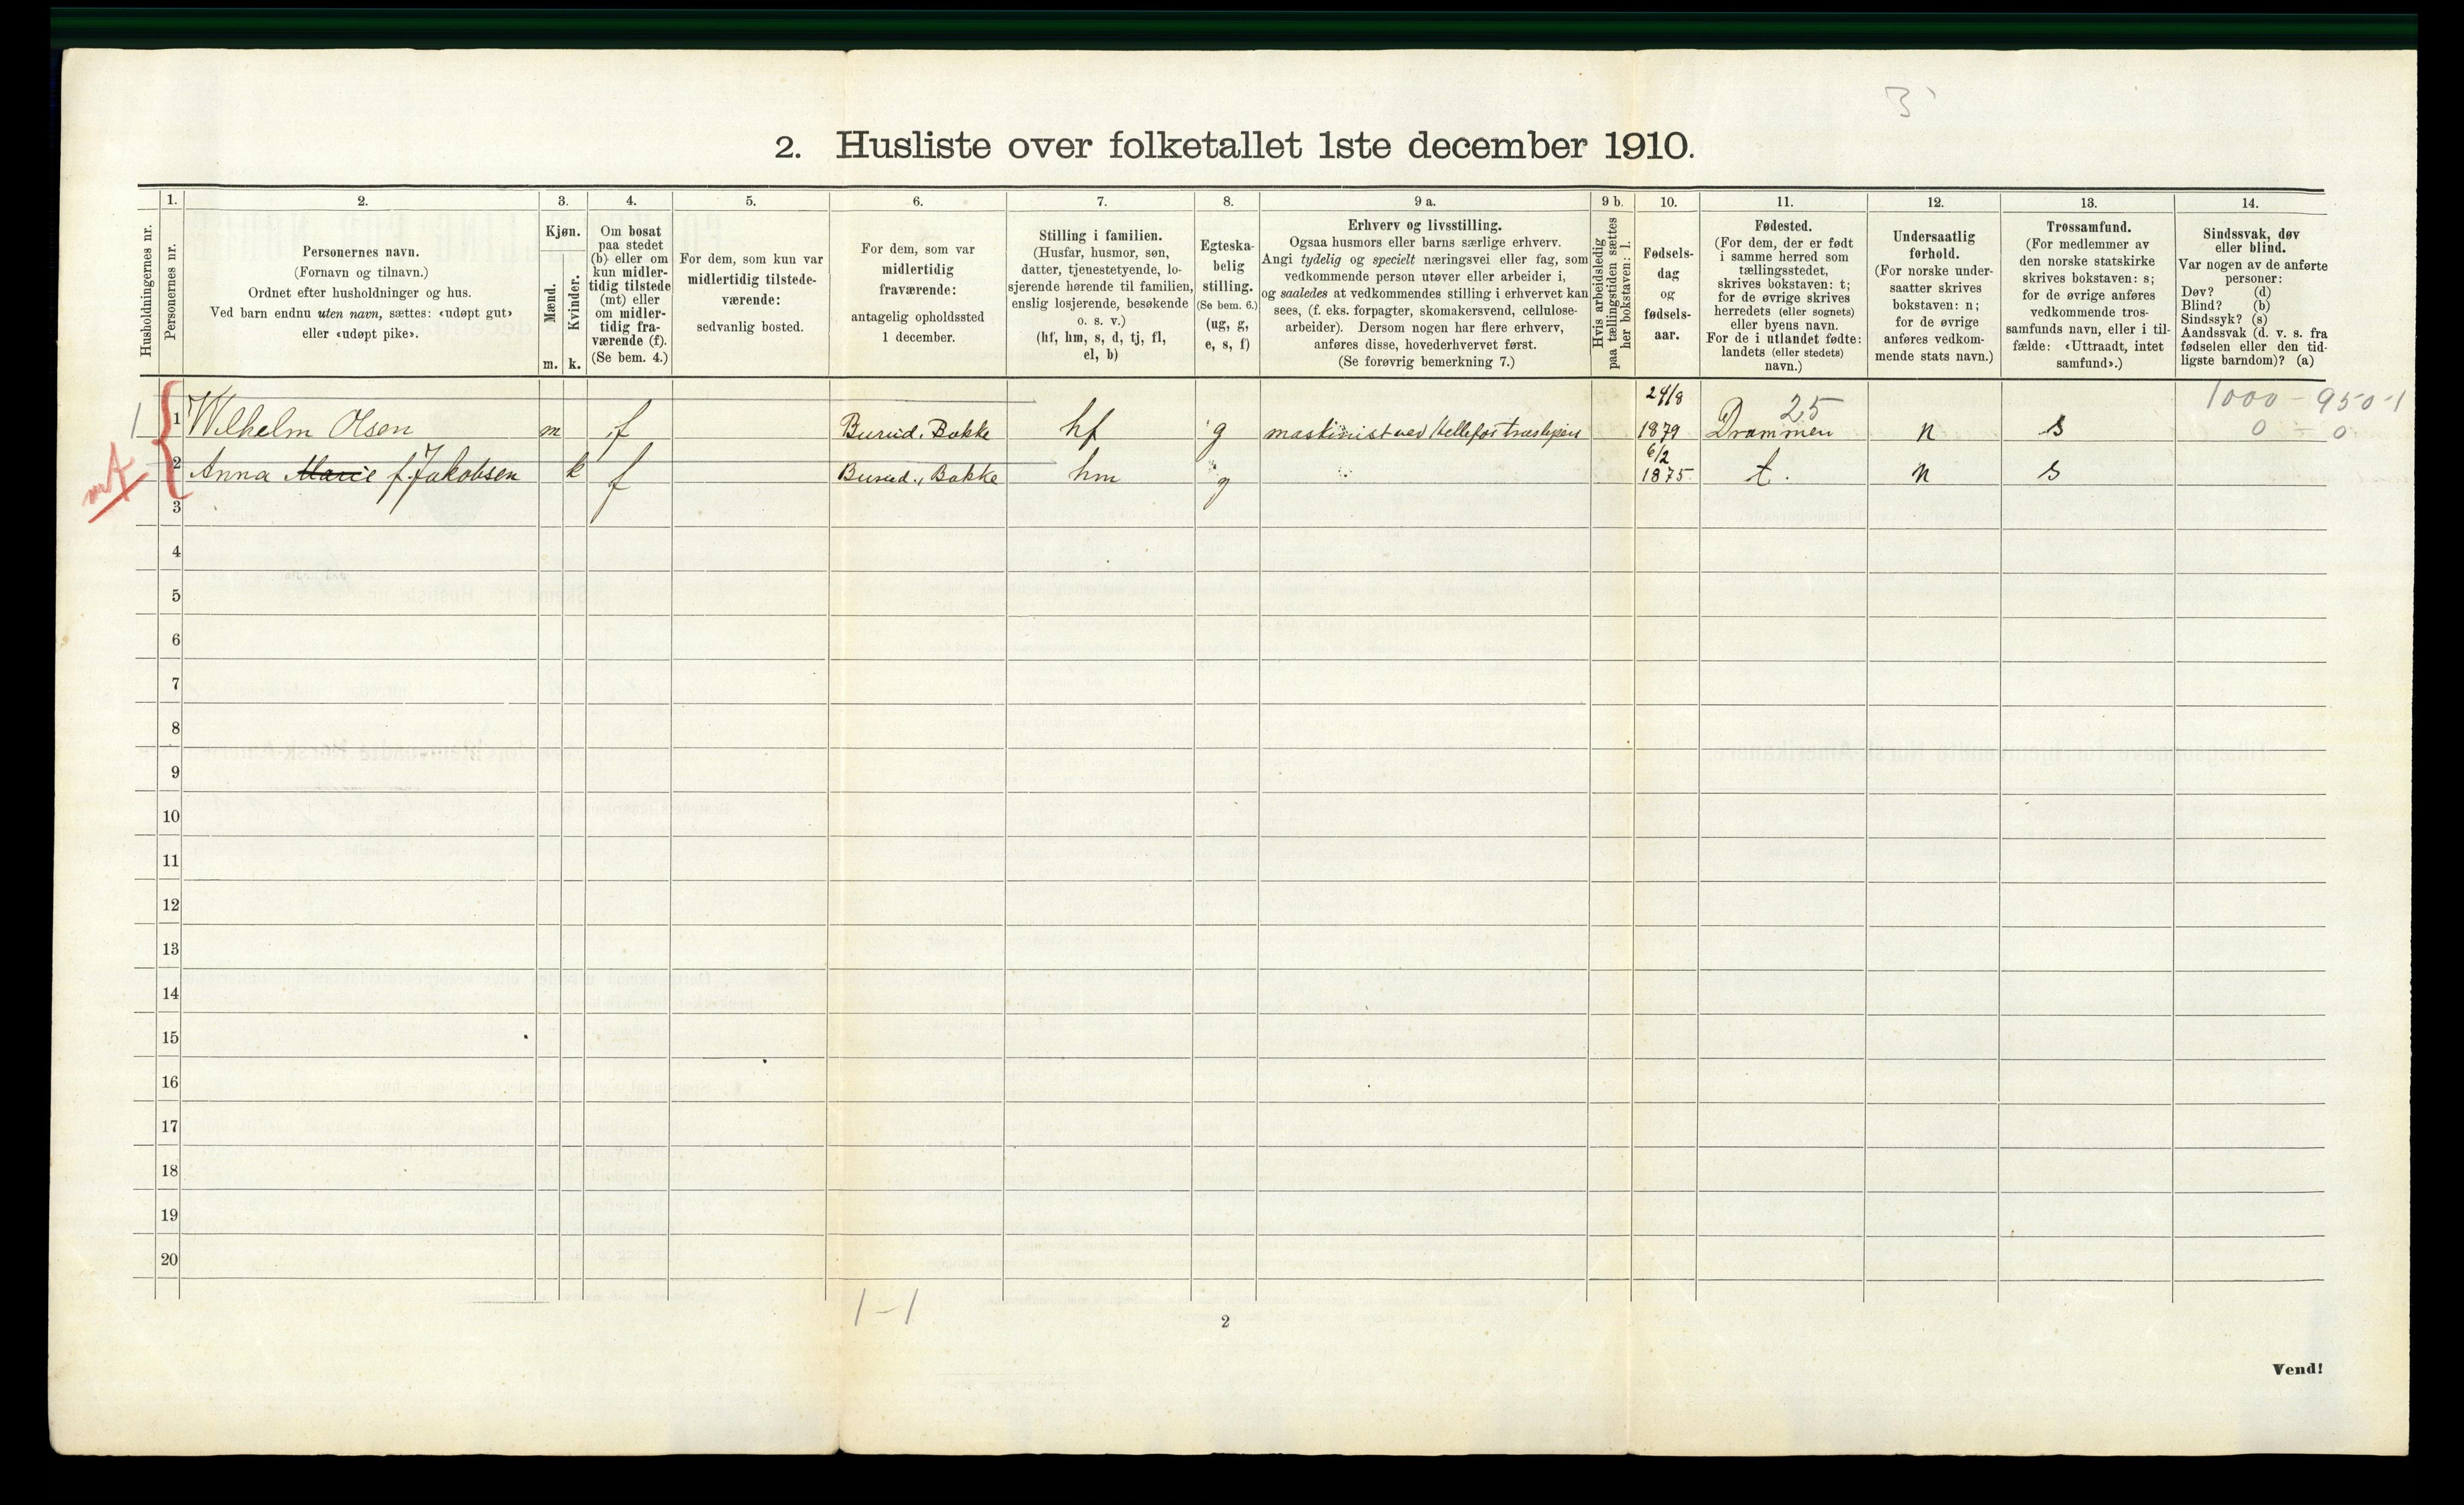 3
2. Husliste over folketallet 1ste december 1910.
Husholdningernes nr.
1.
Personernes nr.
2.
Personernes navn.
(Fornavn og tilnavn.)
Ordnet efter husholdninger og hus.
Ved barn endnu uten navn, sættes: «udøpt gut»
eller «udøpt pike».
3.
Kjøn.
Mænd.
Kvinder.
m. k.
4.
Om bosat
paa stedet
(b) eller om
kun midler-
tidig tilstede
(mt) eller
om midler-
tidig fra-
værende (f).
(Se bem. 4.)
5.
For dem, som kun var
midlertidig tilstede-
værende:
sedvanlig bosted.
6.
For dem, som var
midlertidig
fraværende:
antagelig opholdssted
1 december.
7.
Stilling i familien.
(Husfar, husmor, søn,
datter, tjenestetyende, lo-
sjerende hørende til familien,
enslig losjerende, besøkende
o. s. v.)
(hf, hm, s, d, tj, fl,
el, b)
8.
Egteska-
belig
stilling.
(Se bem. 6.)
(ug, g,
e, s, f)
9 a.
Erhverv og livsstilling.
Ogsaa husmors eller barns særlige erhverv.
Angi tydelig og specielt næringsvei eller fag, som
vedkommende person utøver eller arbeider i,
og saaledes at vedkommendes stilling i erhvervet kan
sees, (f. eks. forpagter, skomakersvend, cellulose-
arbeider). Dersom nogen har flere erhverv,
anføres disse, hovederhvervet først.
(Se forøvrig bemerkning 7.)
9 b.
Hvis arbeidsledig
paa tællingstiden sættes
her bokstaven: l.
10.
Fødsels-
dag
og
fødsels-
aar.
11.
Fødested.
(For dem, der er født
i samme herred som
tællingsstedet,
skrives bokstaven: t;
for de øvrige skrives
herredets (eller sognets)
eller byens navn.
For de i utlandet fødte:
landets (eller stedets)
navn.)
12.
Undersaatlig
forhold.
(For norske under-
saatter skrives
bokstaven: n;
for de øvrige
anføres vedkom-
mende stats navn.)
13.
Trossamfund.
(For medlemmer av
den norske statskirke
skrives bokstaven: s;
for de øvrige anføres
vedkommende tros-
samfunds navn, eller i til-
fælde: «Uttraadt, intet
samfund».)
14.
Sindssvak, døv
eller blind.
Var nogen av de anførte
personer:
Døv? (d)
Blind? (b)
Sindssyk? (s)
Aandssvak (d. v. s. fra
fødselen eller den tid-
ligste barndom)? (a)
1000 - 950-1
0 - 0
1 1 Wilhelm Olsen m f Burud, Bakke hf g maskinist ved Hellefos træsliperi 24/8 1879 25 Drammen n s
2 Anna Marie f. Jakobsen k f Burud, Bakke hm g 6/2 1875. t. n s
3
4
5
6
7
8
9
10
11
12
13
14
15
16
17
18
19
20
1-1
2
Vend!